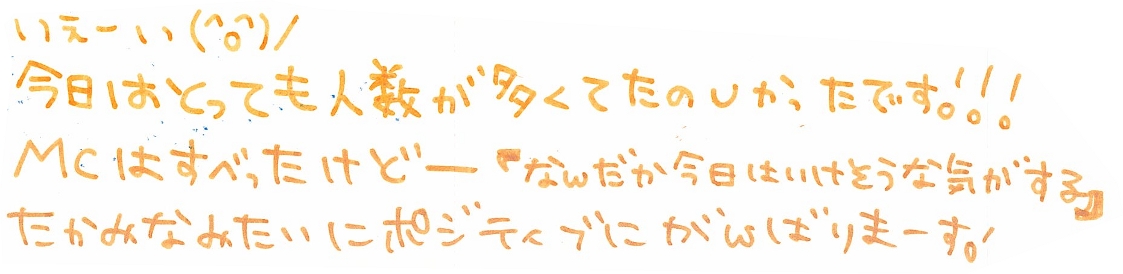 いぇーい(^o^)/
今日はとっても人数が多くてたのしかったです。!!!
MCはすべったけどー『なんだか今日はいけそうな気がする』
たかみなみたいにポジティブにがんばりまーす。!